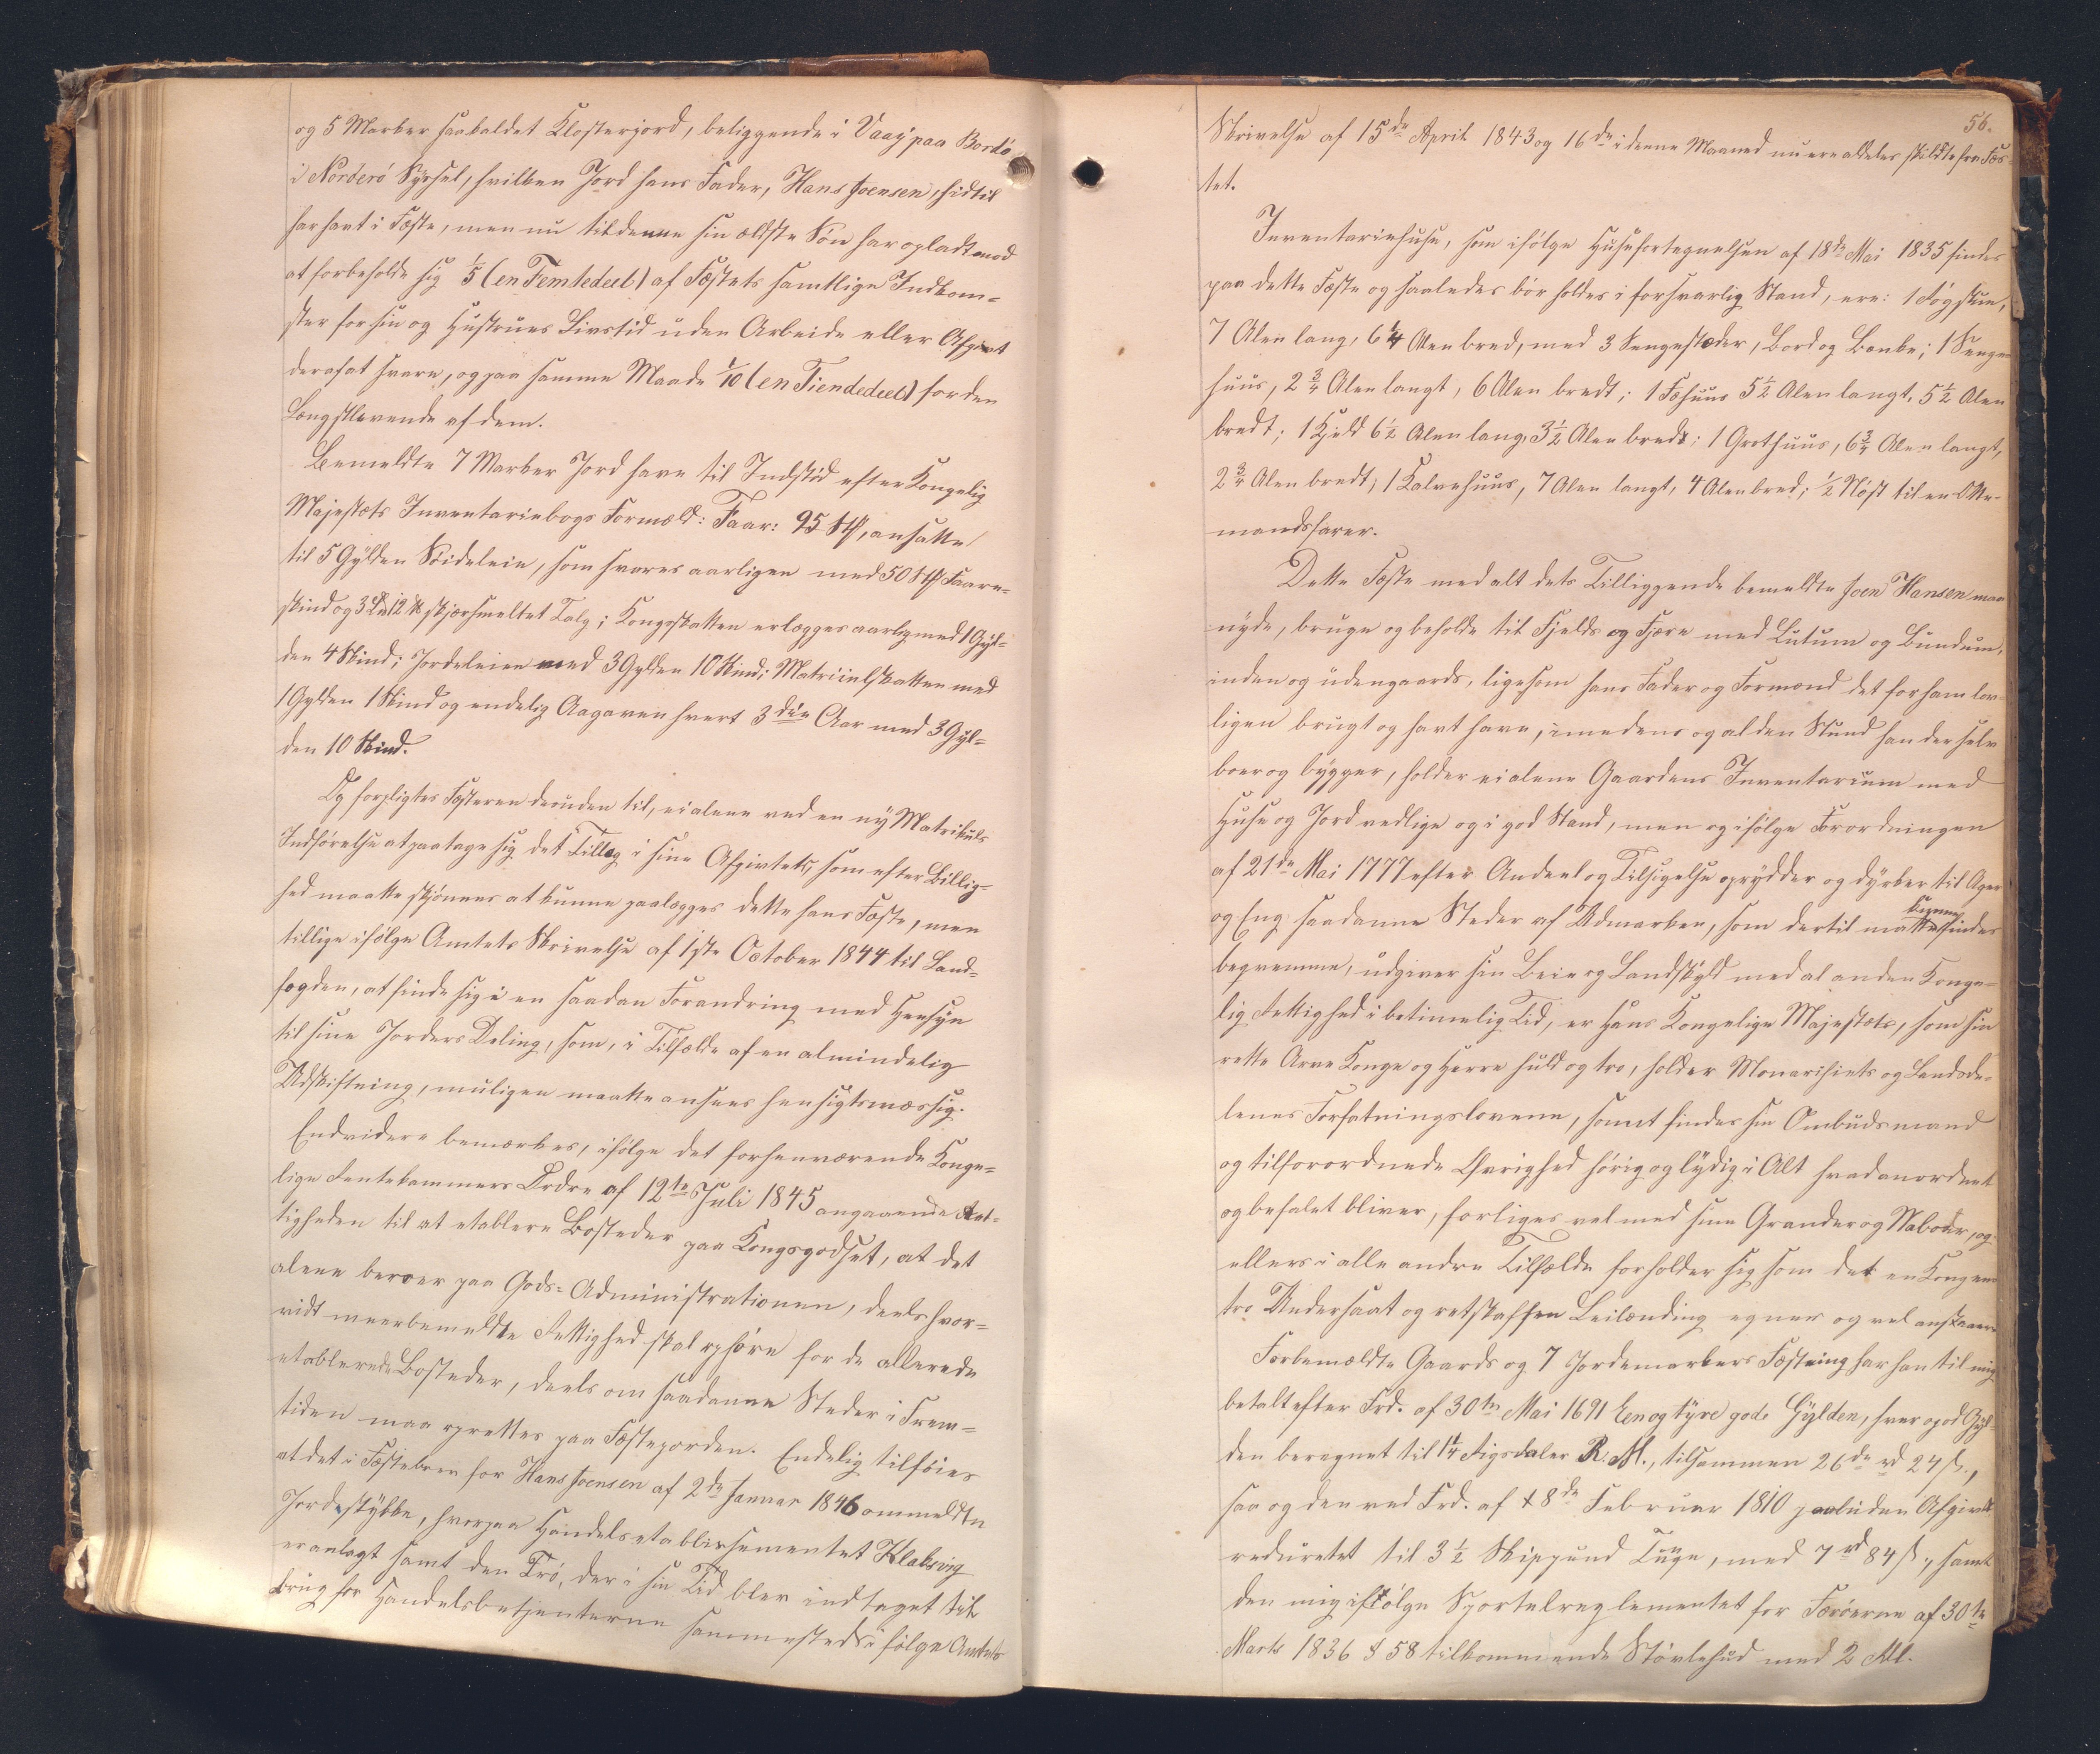 og 5 Marker saakaldet Klosterjord, beliggende i Vaag paa Bordø
i Norderø Syssel, hvilken Jord hans Fader, Hans Joensen, hidtil
har havt i Fæste, men nu til denne sin ældste Søn har opladt mod
at forbeholde sig 1/5 (en Femtedeel) af Fæstets samtlige Indkom=
ster for sin og Hustrues Livstid uden Arbeide eller Afgivt
deraf at svare, og paa samme Maade 1/10 (en Tiendedeel) for den
Længstlevende af dem.
Bemeldte 7 Marker Jord have til Indstød efter Kongelig
Majestæts Inventariebogs Formæld: Faar: 95 Stk, ansatte
til 5 Gylden Søideleie, som svares aarligen med 50 Stk Faare=
skind og 3 Lu 12 ℔ skjærsmeltet Talg; Kongsskatten erlægges aarlig med 1 Gyl=
den 4 Skind; Jordeleien med 3 Gylden 10 Skind; Matriculskatten med
1 Gylden 1 Skind og endelig Aagaven hvert 3die Aar med 3 Gyl=
den 10 Skind.
Og forpligtes Fæsteren desuden til, ei alene ved en ny Matrikuls
Indførelse at paatage sig det Tillæg i sine Afgivter, som efter Billig=
hed maatte skjønnes at kunne paalægges dette hans Fæste, men
tillige ifølge Amtets Skrivelse af 1ste October 1844 til Land=
fogden, at finde sig i en saadan Forandring med Hensyn
til sine Jorders Deling, som, i Tilfælde af en almindelig
Udskiftning, muligen maatte ansees hensigtsmæssig.
Endvidere bemærkes, ifølge det forhenværende Konge=
lige Rentekammers Ordre af 12te Juli 1845 angaaende Ret=
tigheden til at etablere Bosteder paa Kongsgodset, at det
alene beroer paa Gods=Administrationen, deels hvor=
vidt meerbemeldte Rettighed skal ophøre for de allerede
etablerede Bosteder, deels om saadanne Steder i Frem=
tiden maa oprettes paa Fæstejorden. Endelig tilføies
at det i Fæstebrev for Hans Joensen af 2de Januar 1846 ommeldte
Jordestykke, hvorpaa Handelsetablissementet Klaksvig
er anlagt samt den Trø, der i sin Tid blev indtaget til
Brug for Handelsbetjenterne sammesteds ifølge Amtets
56.
Skrivelse af 15de April 1843 og 16de i denne Maaned nu ere aldeles skildte fra Fæs=
tet.
Inventariehuse, som ifølge Husefortegnelsen af 18de Mai 1835 findes
paa dette Fæste og saaledes bør holdes i forsvarlig Stand, ere: 1 Røgstue,
7 Alen lang, 6 1/4 Alen bred, med 3 Sengestæder, Bord og Bænke; 1 Senge
huus, 2 3/4 Alen langt, 6 Alen bredt; 1 Fæhuus 5 1/2 Alen langt, 5 1/2 Alen
bredt; 1 Hjeld 6 1/2 Alen lang, 3 1/2 Alen bredt; 1 Grothuus, 6 3/4 Alen langt,
2 3/4 Alen bredt; 1 Kalvehuus, 7 Alen langt, 4 Alen bred; 1/2 Nøst til en Otte=
mandsfarer.
Dette Fæste med alt dets Tilliggende bemeldte Joen Hansen maa
nyde, bruge og beholde til Fjelds og Fjære med Lutum og Lundum,
inden og udengaards, ligesom hans Fader og Formænd det for ham lov=
ligen brugt og havt have, imedens og al den Stund han der selv
boer og bygger, holder ei alene Gaardens Inventarium med
Huse og Jord vedlige og i god Stand, men og ifølge Forordningen
af 21de Mai 1777 efter Andeel og Tilsigelse oprydder og dyrker til Ager
og Eng saadanne Steder af Udmarken, som dertil maatte kunne findes
beqvemme, udgiver sin Leie og Landskyld med al anden Konge=
lig Rettighed i betimelig Tid, er Hans Kongelige Majestæt, som sin
rette Arve Konge og Herre huld og tro, holder Monarchiets og Landsde=
lenes Forfatningslovene, samt findes sin Ombudsmand
og tilforordnede Øvrighed hørig og lydig i Alt hvad anordnet
og befalet bliver, forliges vel med sine Grander og Naboer, og
ellers i alle andre Tilfælde forholder sig som det en Kongens
tro Undersaat og retskaffen Leilænding egner og vel anstaaer.
Forbemældte Gaards og 7 Jordemarkers Fæstning har han til mig
betalt efter Frd. af 30te Mai 1691 Een og tyve gode Gylden, hver god Gyl=
den beregnet til 1 1/4 Rigsdaler R. M., tilsammen 26 rd 24 ß.,
saa og den ved Frd. af 8de Februar 1810 paabuden Afgivt
reduceret til 3 1/2 Skippund Tuge, med 7 rd 84 ß., samt
den mig ifølge Sportelreglementet for Færøerne af 30te
Marts 1836 § 58 tilkommende Støvlehud med 2 Rd.